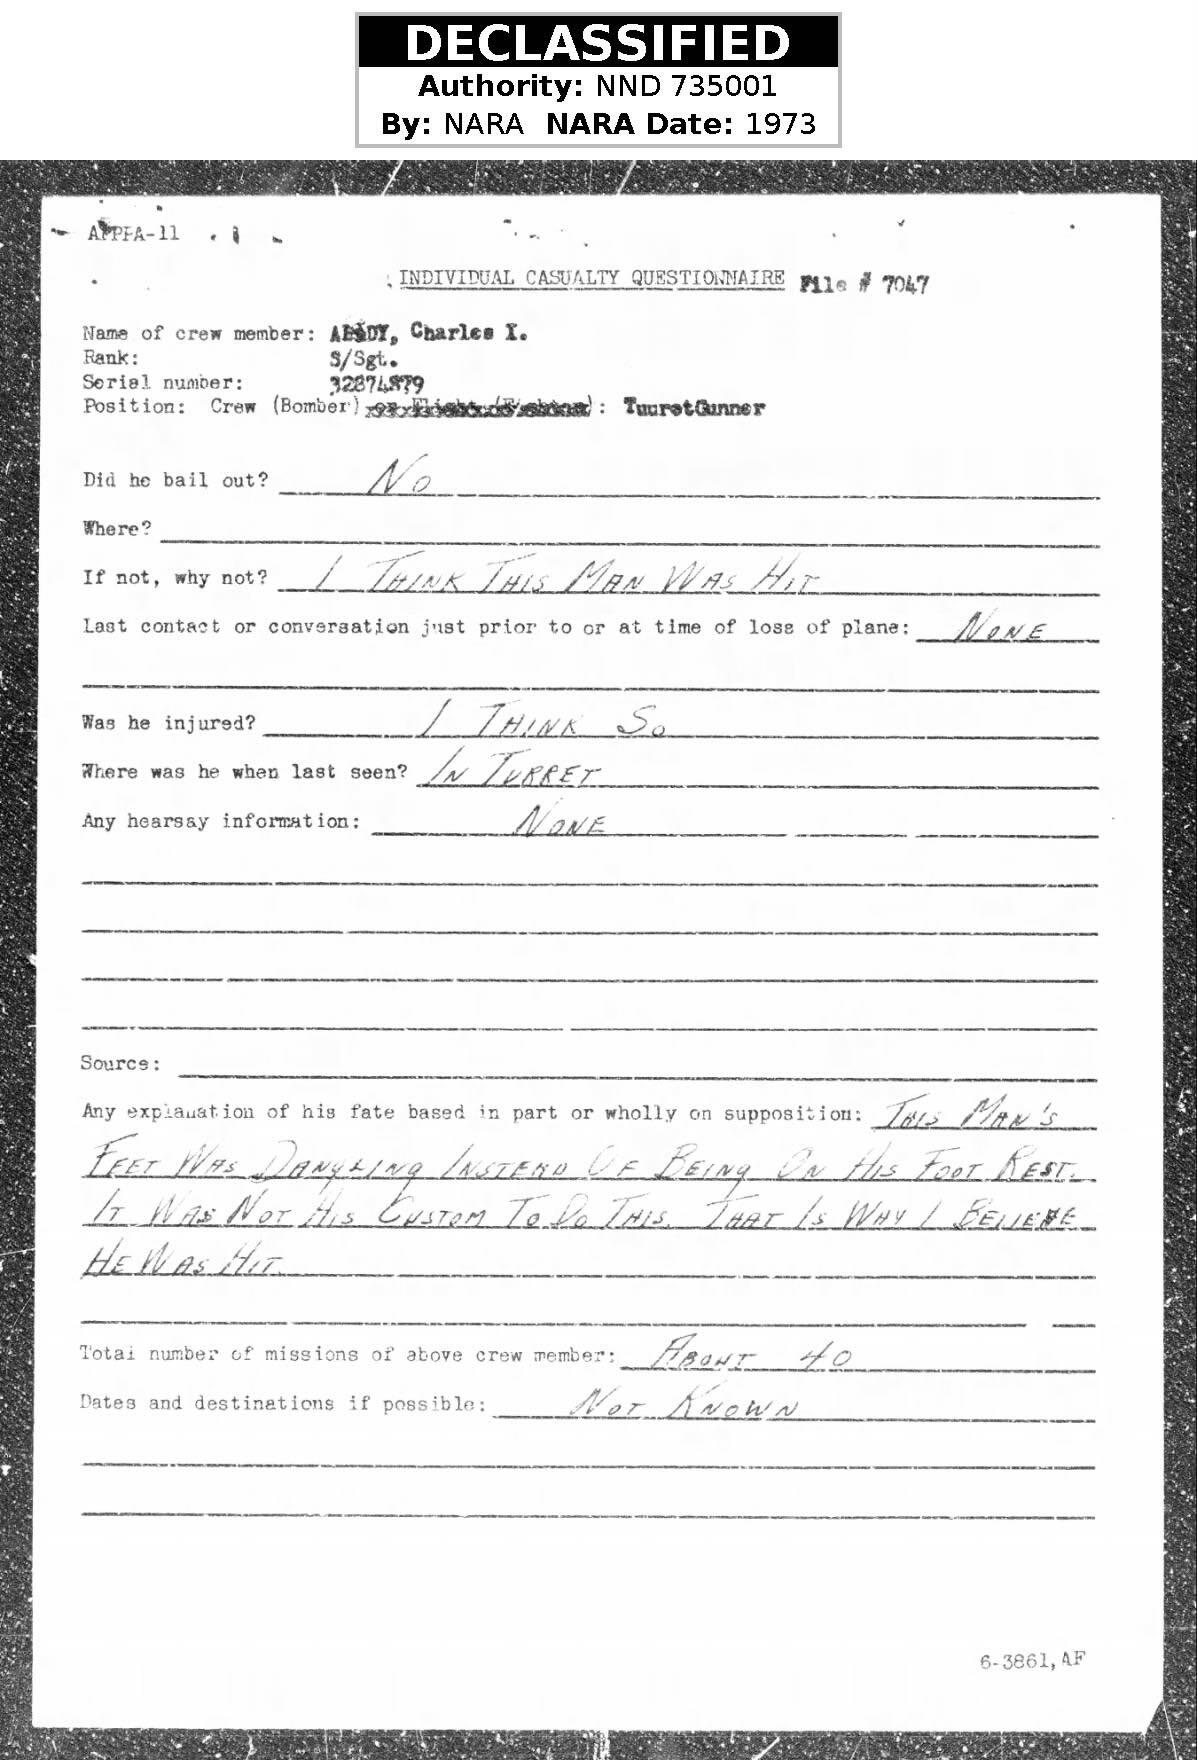 DECLASSIFIED
Authority: NND 735001
By: NARA NARA Date: 1973
APPFA-11
INDIVIDUAL CASUALTY QUESTIONNAIRE File # 7047
Name of crew member: Charles I.
Rank: S/Sgt.
Serial number: 32874879
Position: Crew (Bomber) : TuuretGunner
Did he bail out? No
Where?
If not, why not? I THINK THIS MAN WAS HIT
Last contact or conversation just prior to or at time of loss of plane: NONE
Was he injured? I THINK SO
Where was he when last seen? IN TURRET
Any hearsay information: NONE
Source:
Any explanation of his fate based in part or wholly on supposition: THIS MAN'S
FEET WAS DANGLING INSTEAD OF BEING ON HIS FOOT REST.
IT WAS NOT HIS CUSTOM TO DO THIS. THAT IS WHY I BELIEVE
HE WAS HIT.
Total number of missions of above crew member: ABOUT 40
Dates and destinations if possible: NOT KNOWN
6-3861, AF